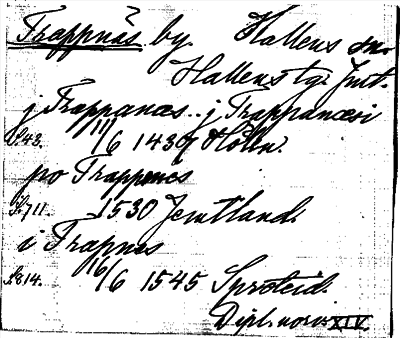 Trappnäs by. Hallens sn.
Hallens tg. Jmt.
j Trappanæs.. j Trappanæsi
S.43. 11/6 1430 Hólm.
po Trappenes
S.711. 1530 Jemtland.
i Trapnes
S.814. 16/6 1545 Sproteid.
Dipl. norv. XIV.